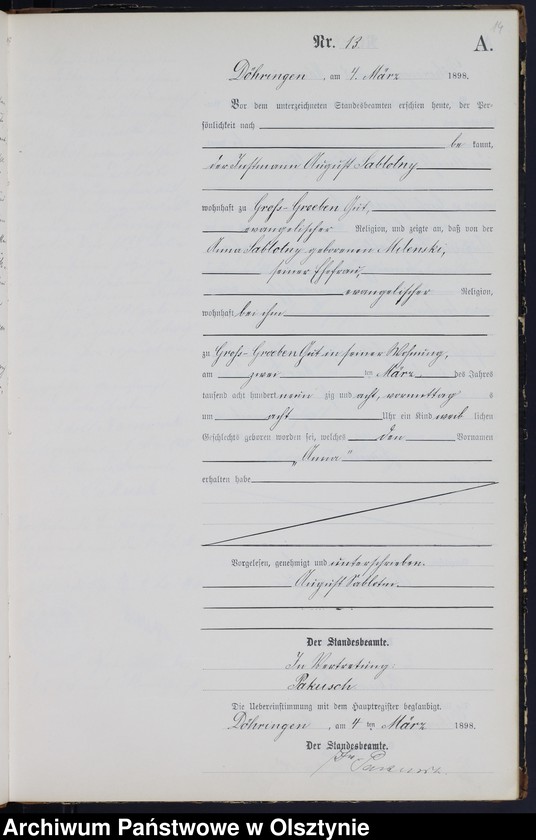 14
Nr. 13
A.
Döhringen, am 4. März 1898.
Vor dem unterzeichneten Standesbeamten erschien heute, der Per-
sönlichkeit nach
be kannt,
der Instmann August Sablotny
wohnhaft zu Gross-Groeben Gut,
evangelischer Religion, und zeigte an, daß von der
Anna Sablotny geborenen Milenski,
seiner Ehefrau,
evangelischer Religion,
wohnhaft bei ihm
zu Gross-Groeben Gut in seiner Wohnung,
am zwei ten März des Jahres
tausend acht hundert neun zig und acht, vormittag s
um acht Uhr ein Kind weib lichen
Geschlechts geboren worden sei, welches den Vornamen
„Anna"
erhalten habe
Vorgelesen, genehmigt und unterschrieben.
August Sablotny
Der Standesbeamte.
In Vertretung:
Pakusch
Die Uebereinstimmung mit dem Hauptregister beglaubigt.
Döhringen, am 4 ten März 1898.
Der Standesbeamte.
Archiwum Państwowe w Olsztynie